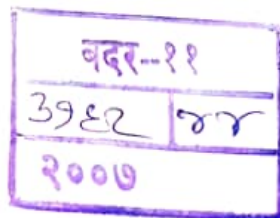 बदर--११
३१६२ ४४
२००७